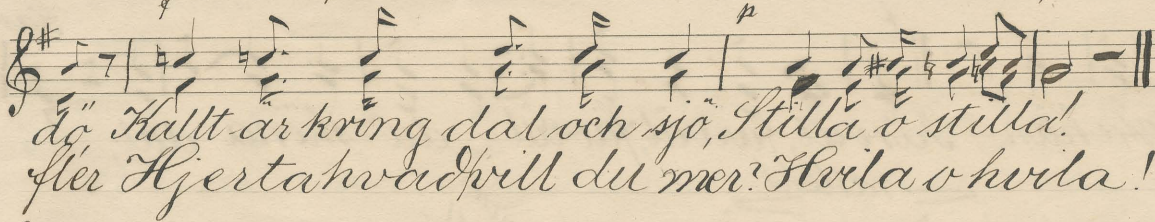 p
dö, Kallt är kring dal och sjö, Stilla o stilla!
fler Hjerta hvad vill du mer? Hvila o hvila!